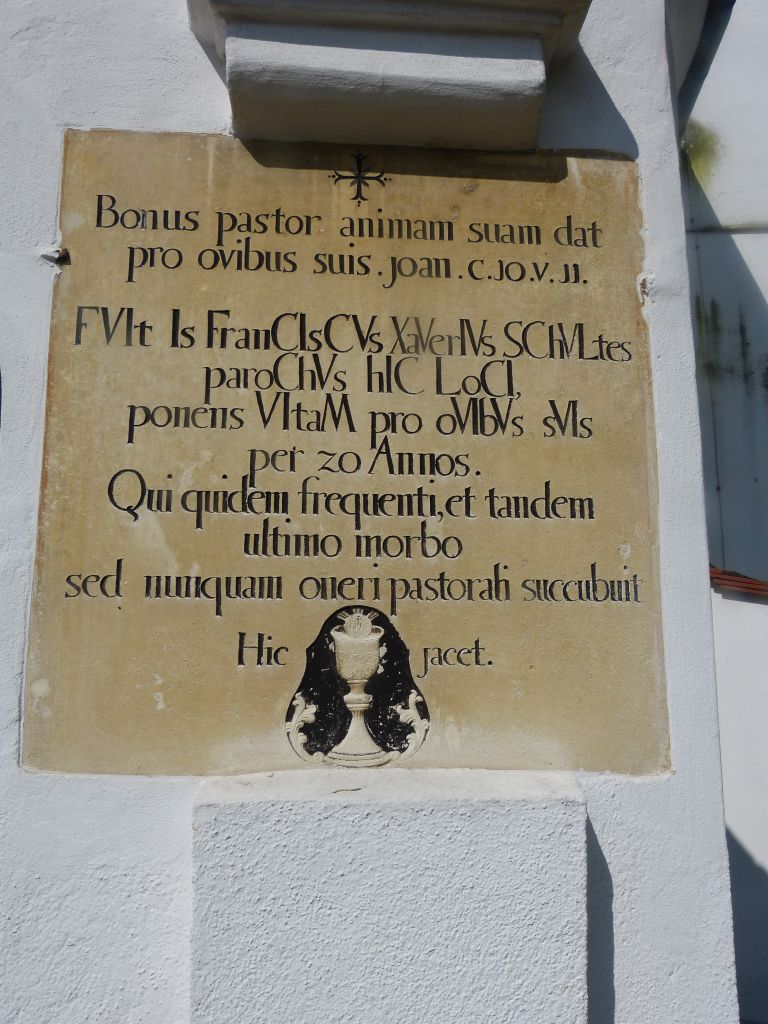 Bonus pastor animam suam dat
pro ovibus suis. joan. c.10.v.11.
FVIt Is FranCIsCVs XaVerIVs SChVLtes
paroChVs hIC LoCI,
ponens VItaM pro oVIbVs sVIs
per 20 Annos.
Qui quidem frequenti, et tandem
ultimo morbo
sed nunquam oneri pastorali succubuit
Hic jacet.